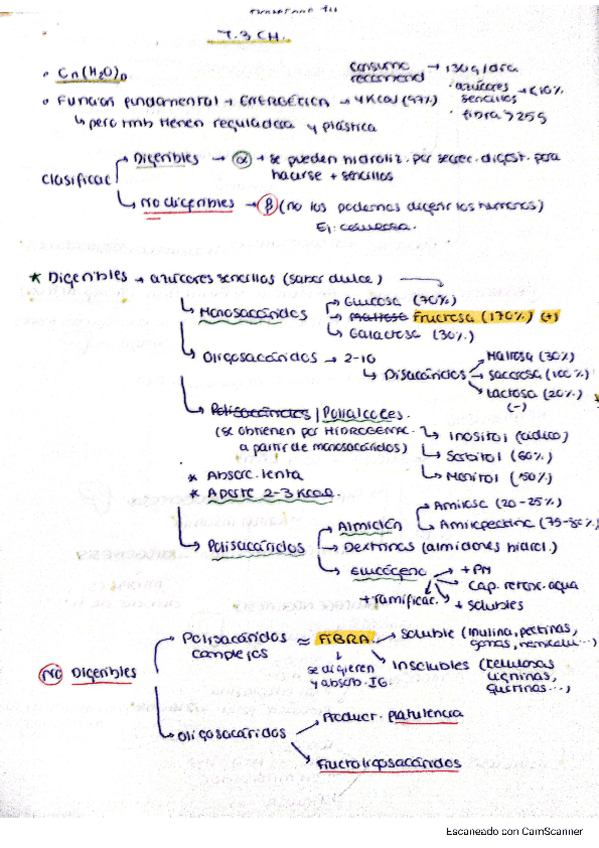 T.3 CH.
• Cn(H2O)n
consumo recomend → 130g/día
• azúcares sencillos → <10%
• fibra > 25g
• Función fundamental → ENERGÉTICA → 4Kcal (97%)
↳ pero tmb tienen reguladora y plástica
Clasificac
Digeribles → α → se pueden hidroliz. por secrec. digest. para hacerse + sencillos
No digeribles → β (no los podemos digerir los humanos)
Ej. celulosa.
* Digeribles → azúcares sencillos (sabor dulce)
↳ Monosacáridos
Glucosa (70%)
Maltosa Fructosa (170%) (+)
Galactosa (30%)
↳ Oligosacáridos → 2-10
↳ Disacáridos
Maltosa (30%)
Sacarosa (100%)
Lactosa (20%)
(-)
↳ Polisacáridos / Polialcoles.
(se obtienen por HIDROGENAC. a partir de monosacáridos)
↳ Inositol (cíclico)
↳ Sorbitol (60%)
↳ Manitol (50%)
* Absorc. lenta
* Aporte 2-3 Kcal.
↳ Polisacáridos
Almidón
Amilosa (20-25%)
Amilopectina (75-80%)
Dextrinas (almidones hidrol.)
Glucógeno
+ PM
Cap. retenc. agua
+ solubles
+ ramificac.
No Digeribles
Polisacáridos complejos ≈ FIBRA
Soluble (inulina, pectinas, gomas, hemicelu...)
Insolubles (celulosas, ligninas, quitinas...)
se digieren y absorb. IG.
Oligosacáridos
Product. flatulencia
Fructoligosacáridos
Escaneado con CamScanner